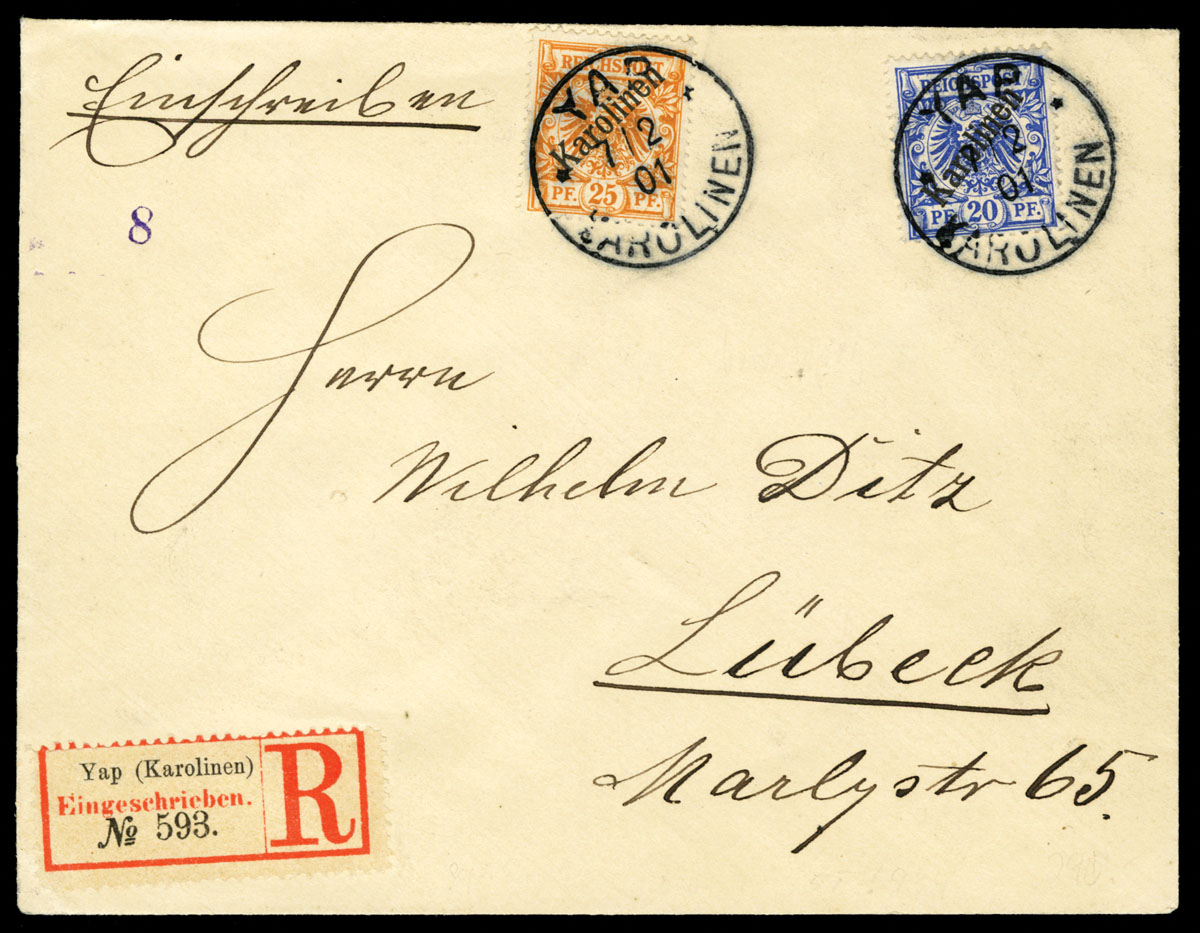 Einschreiben
REICHSPOST
Karolinen
PF. 25 PF.
YAP
7/2
01
KAROLINEN
REICHSPOST
Karolinen
PF. 20 PF.
YAP
7/2
01
KAROLINEN
8
Herrn
Wilhelm Ditz
Lübeck
Marlystr 65.
Yap (Karolinen)
Eingeschrieben.
№ 593.
R